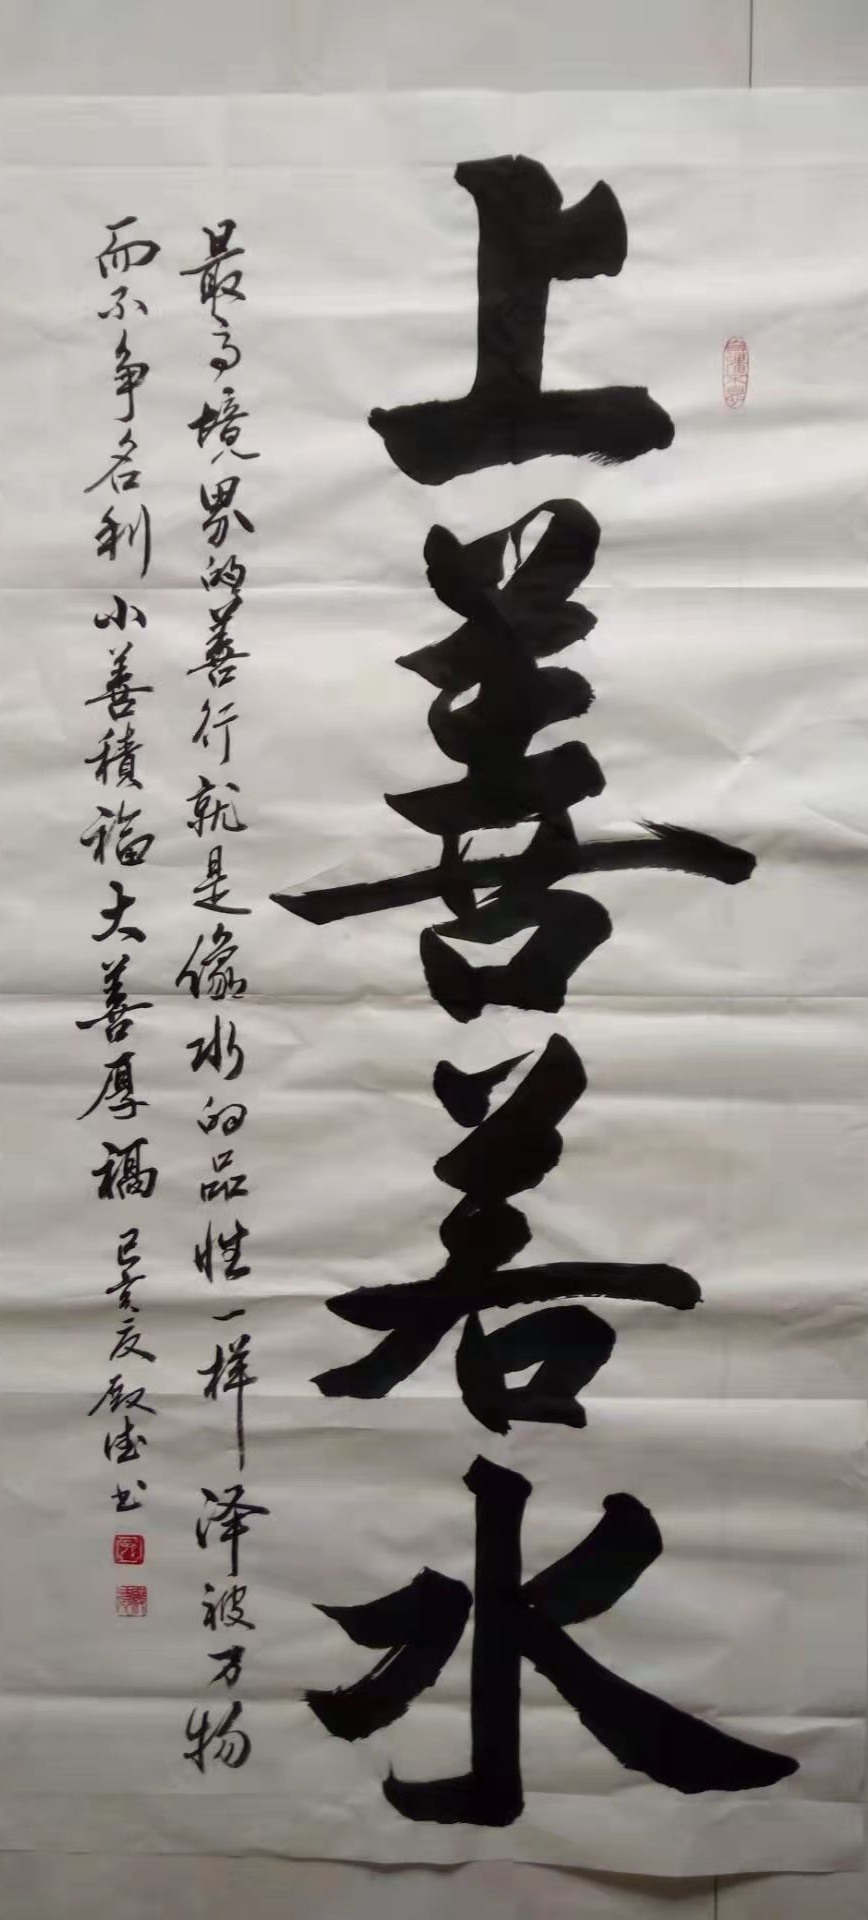 上善若水
最高境界的善行就是像水的品性一样泽被万物
而不争名利小善積福大善厚福己亥夏殿德书